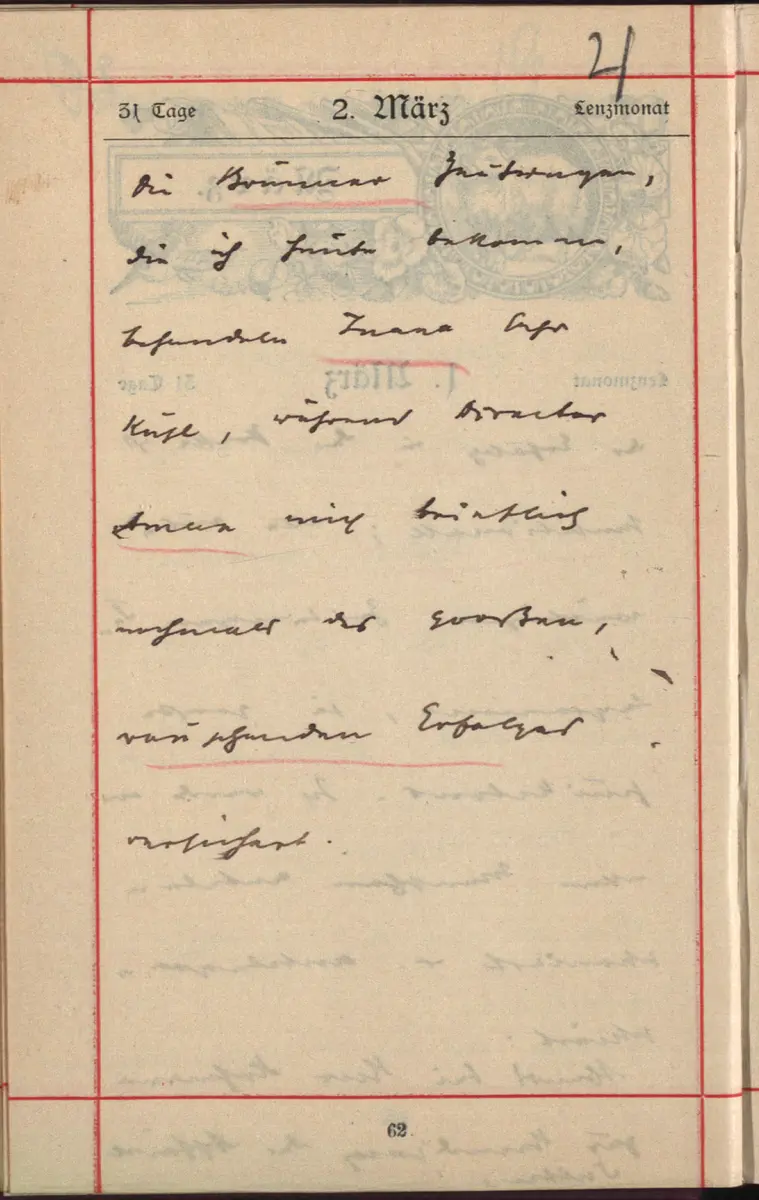 4
31 Tage 2. März Lenzmonat
Die Brünner Zeitungen,
die ich heute bekomme,
behandeln Juana sehr
kühl, während Director
Aman mich brieflich
nochmals des großen,
rauschenden Erfolges
versichert.
62